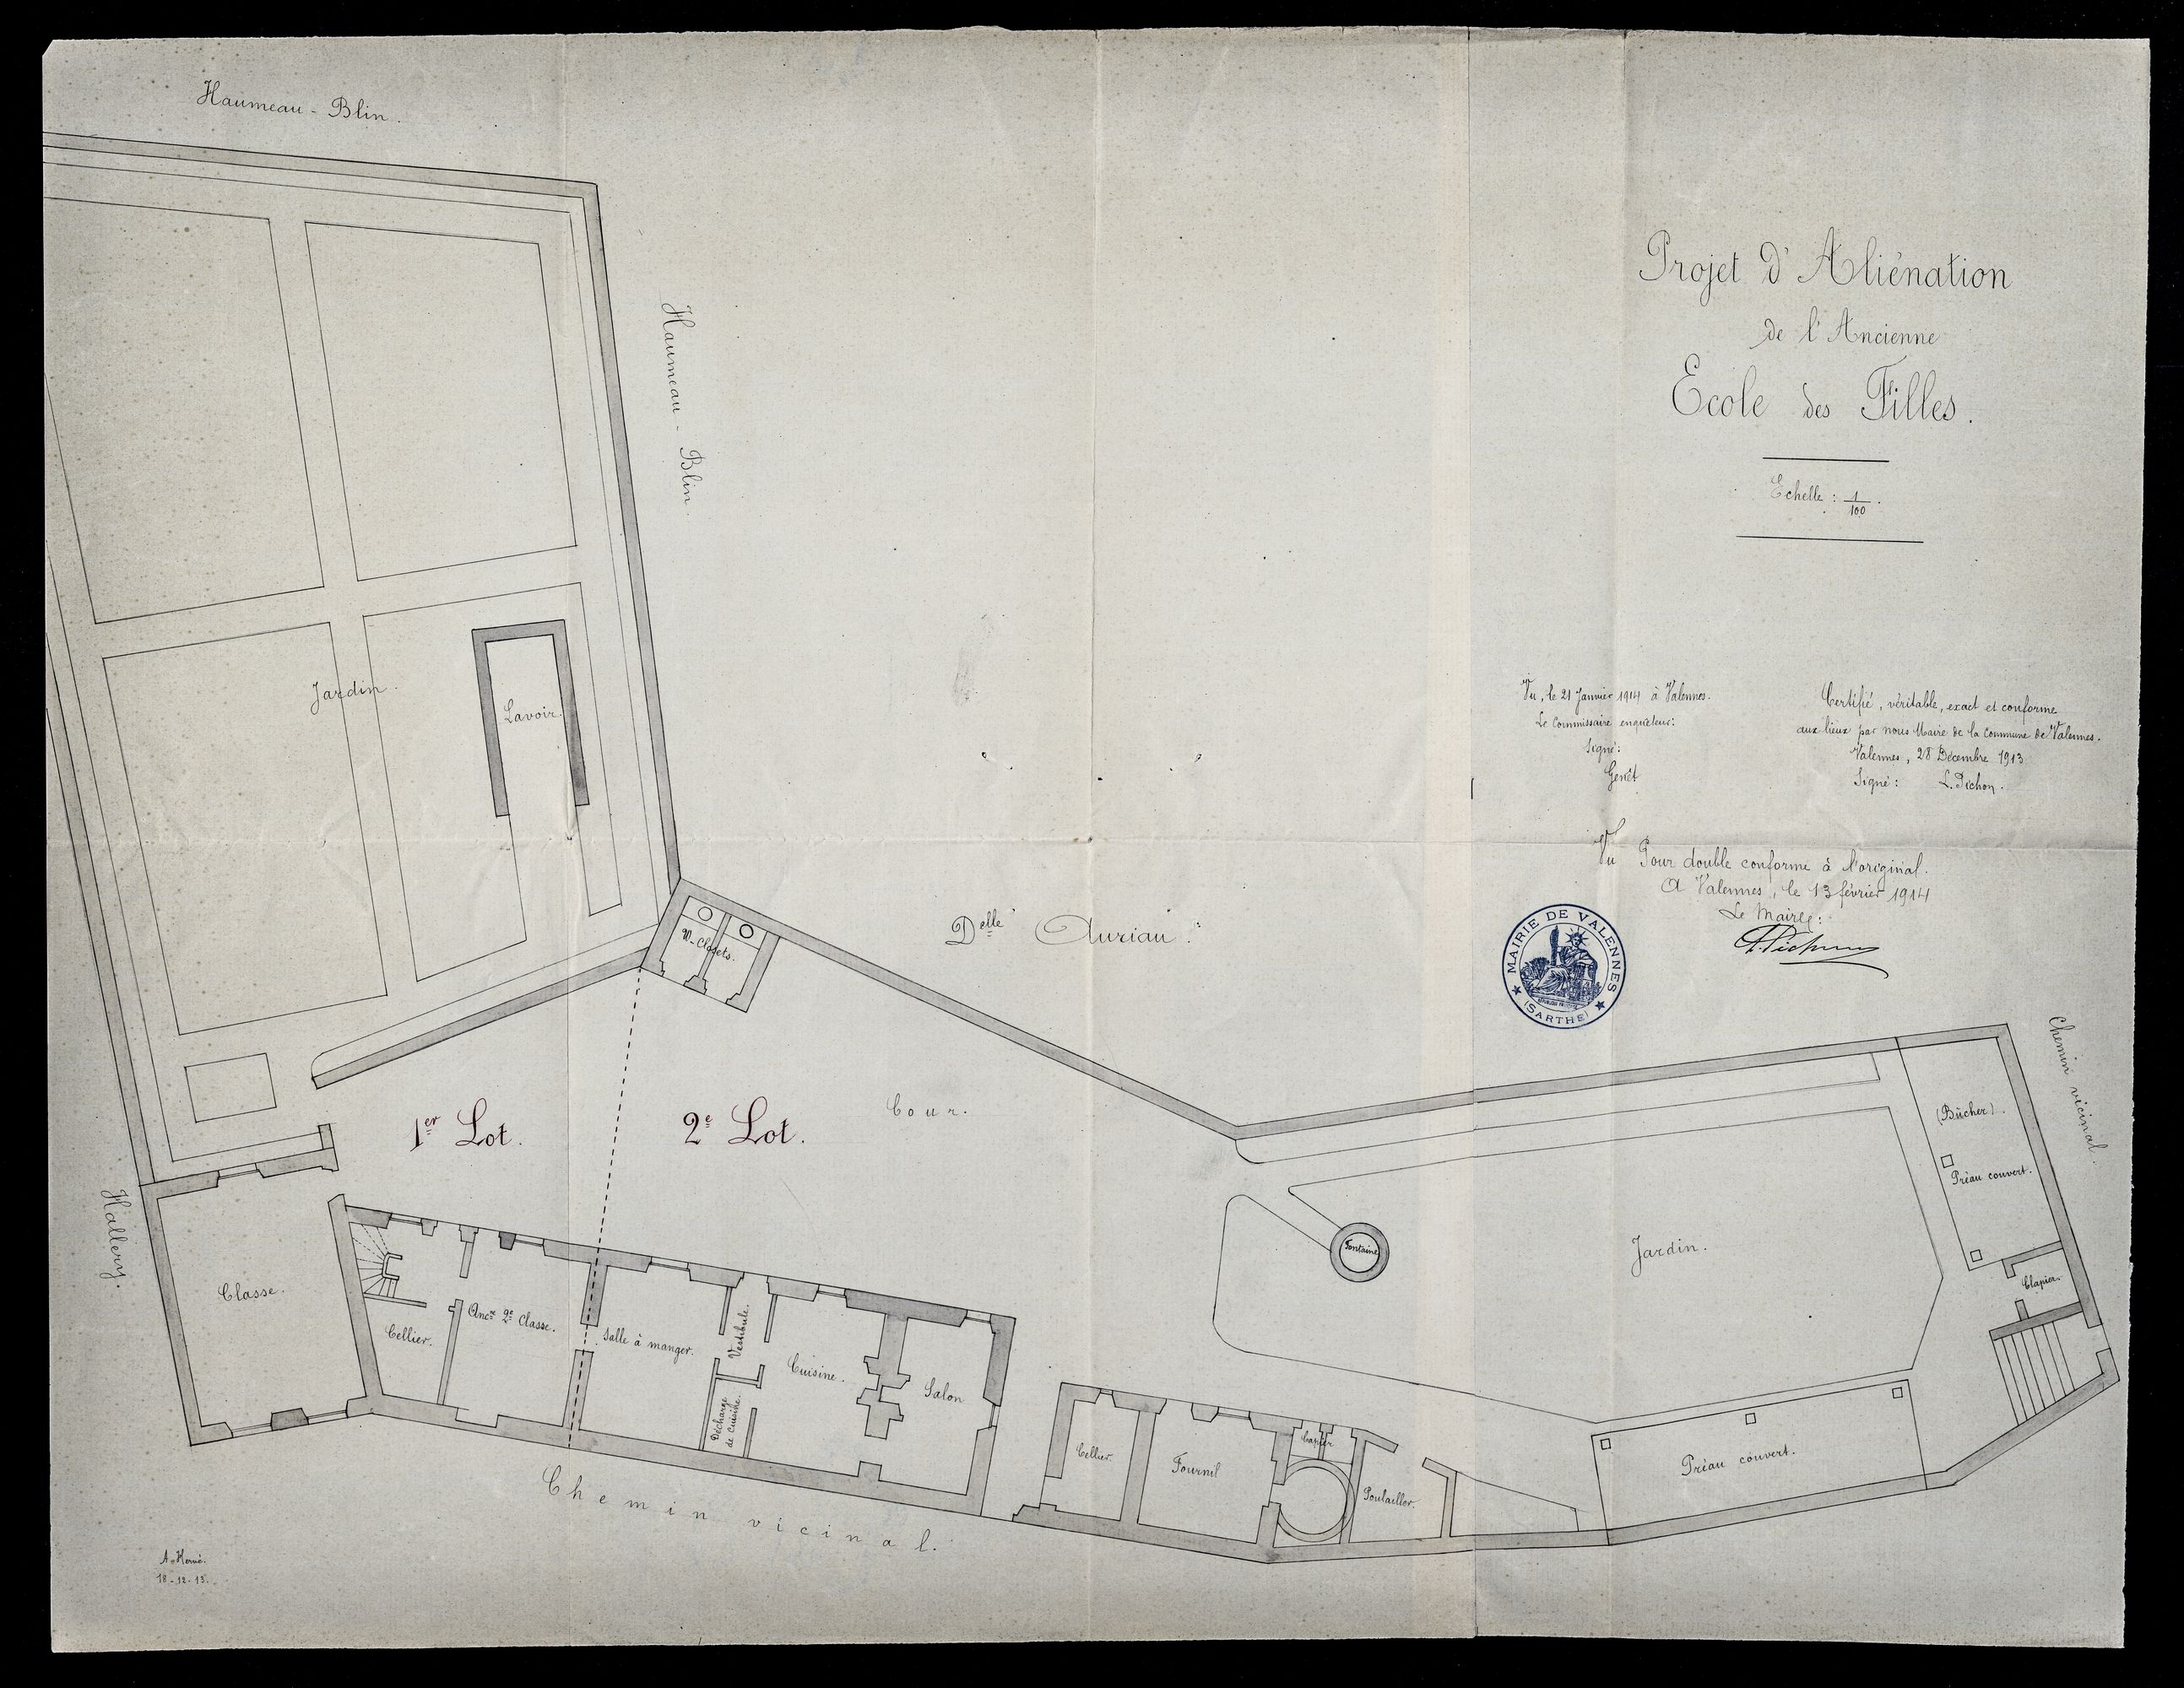 Haumeau - Blin.
Haumeau - Blin.
Projet d'Aliénation
de l'Ancienne
Ecole des Filles.
Echelle : 1/100.
Jardin.
Lavoir.
Vu, le 21 Janvier 1914 à Valennes.
Le Commissaire enquêteur:
Signé:
Genêt
Certifié, véritable, exact et conforme
aux lieux par nous Maire de la Commune de Valennes.
Valennes, 28 Décembre 1913
Signé : L. Pichon.
Vu Pour double conforme à l'original.
A Valennes, le 13 février 1914
Le Maire:
L. Pichon
MAIRIE DE VALENNES
(SARTHE)
W-Closets.
Delle Auriau.
Chemin vicinal.
1er Lot.
2e Lot.
Cour.
(Bûcher).
Préau couvert.
Hallery.
Fontaine
Jardin.
Clapier.
Classe.
Cellier.
Ancne 2e Classe.
Salle à manger.
Vestibule.
Décharge
de cuisine.
Cuisine.
Salon
Cellier.
Fournil
Lapier
Poulailler.
Préau couvert.
Chemin vicinal.
A. Hervé.
18-12-13.